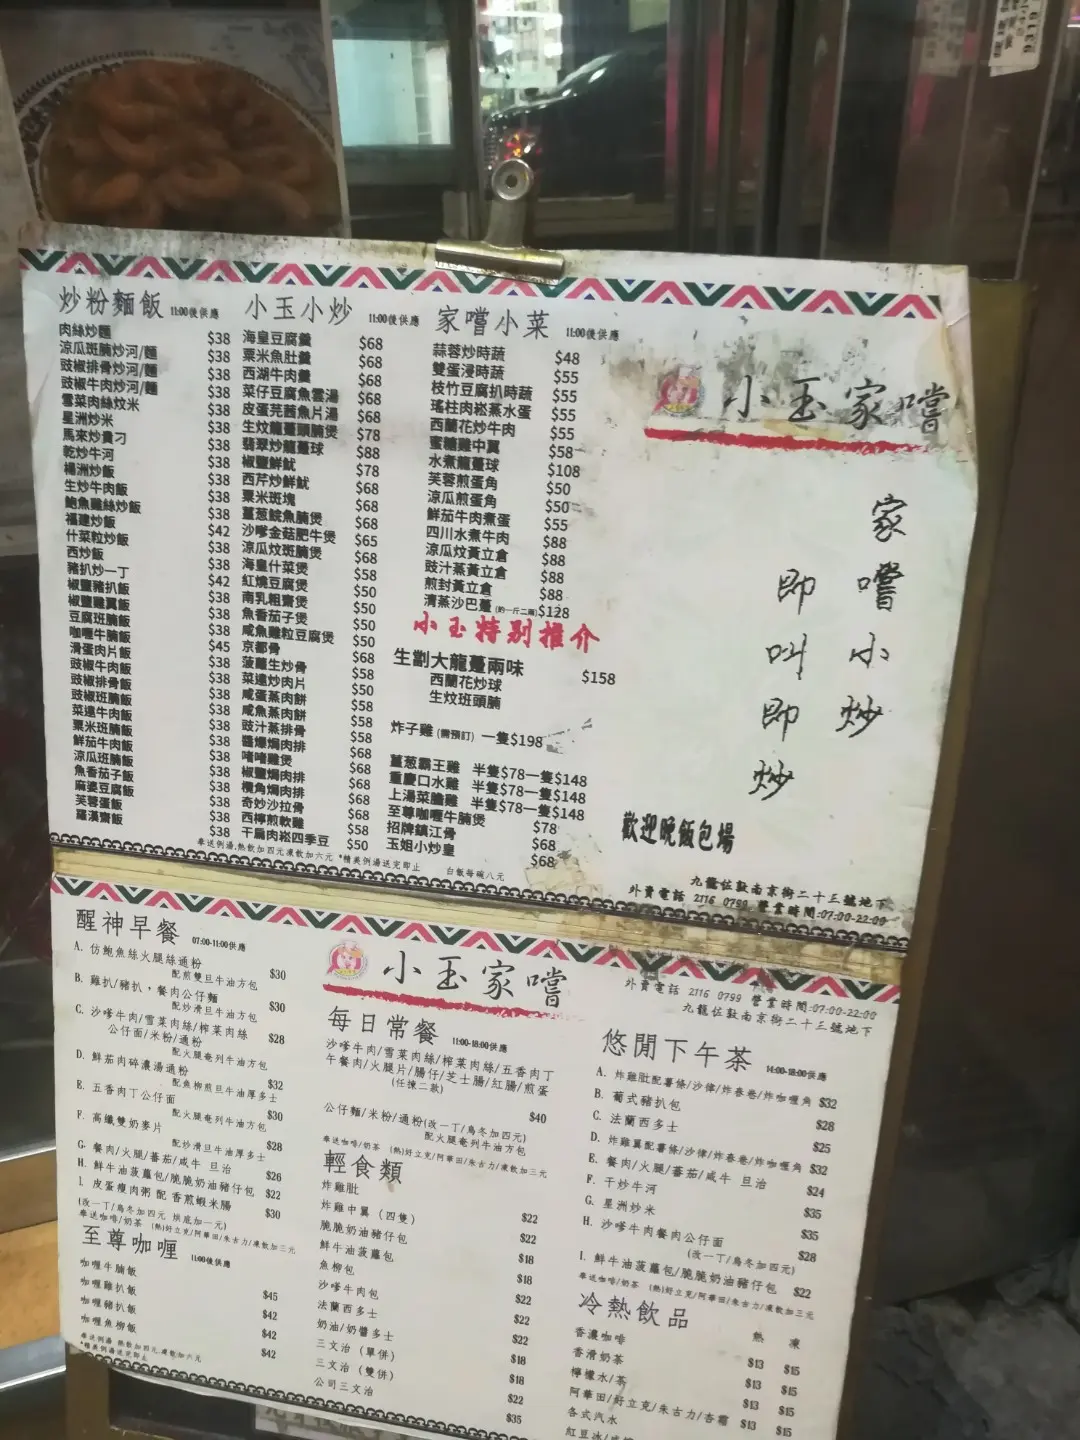 炒粉麵飯 11:00後供應
肉絲炒麵 $38
涼瓜斑腩炒河/麵 $38
豉椒排骨炒河/麵 $38
豉椒牛肉炒河/麵 $38
雪菜肉絲炆米 $38
星洲炒米 $38
馬來炒貴刁 $38
乾炒牛河 $38
楊洲炒飯
生炒牛肉飯
鮑魚雞絲炒飯
福建炒飯
什菜粒炒飯
西炒飯
豬扒炒一丁
椒鹽豬扒飯
椒鹽雞翼飯
豆腐班腩飯
咖喱牛腩飯
滑蛋肉片飯
豉椒牛肉飯
豉椒排骨飯
豉椒班腩飯
菜遠牛肉飯
粟米班腩飯
鮮茄牛肉飯
涼瓜班腩飯
魚香茄子飯
麻婆豆腐飯
芙蓉蛋飯
羅漢齋飯
小玉小炒 11:00後供應
海皇豆腐羹 $68
粟米魚肚羹 $68
西湖牛肉羹 $68
菜仔豆腐魚雲湯 $68
皮蛋芫茜魚片湯 $68
生炆龍躉頭腩煲 $78
翡翠炒龍躉球 $88
椒鹽鮮魷 $78
西芹炒鮮魷 $68
粟米斑塊 $68
薑葱鯇魚腩煲 $68
沙嗲金菇肥牛煲 $65
涼瓜炆斑腩煲 $68
海皇什菜煲 $58
紅燒豆腐煲 $50
南乳粗齋煲 $50
魚香茄子煲 $50
咸魚雞粒豆腐煲 $50
京都骨 $68
菠蘿生炒骨 $58
菜遠炒肉片 $50
咸蛋蒸肉餅 $58
咸魚蒸肉餅 $58
豉汁蒸排骨 $58
醬爆焗肉排 $68
啫啫雞煲 $68
椒鹽焗肉排 $68
欖角焗肉排 $68
奇妙沙拉骨 $68
西檸煎軟雞 $58
干扁肉崧四季豆 $50
家嚐小菜 11:00後供應
蒜蓉炒時蔬 $48
雙蛋浸時蔬 $55
枝竹豆腐扒時蔬 $55
瑤柱肉崧蒸水蛋 $55
西蘭花炒牛肉 $55
蜜糖雞中翼 $58
水煮龍躉球 $108
芙蓉煎蛋角 $50
涼瓜煎蛋角 $50
鮮茄牛肉煮蛋 $55
四川水煮牛肉 $88
涼瓜炆黃立倉 $88
豉汁蒸黃立倉 $88
煎封黃立倉 $88
清蒸沙巴躉 (約一斤二兩) $128
小玉特别推介
生劏大龍躉兩味 $158
西蘭花炒球
生炆班頭腩
炸子雞 (需預訂) 一隻$198
薑葱霸王雞 半隻$78一隻$148
重慶口水雞 半隻$78一隻$148
上湯菜膽雞 半隻$78一隻$148
至尊咖喱牛腩煲 $78
招牌鎮江骨 $68
玉姐小炒皇 $68
奉送例湯,熱飲加四元凍飲加六元 *精美例湯送完即止 白飯每碗八元
小玉家嚐
家嚐小炒
即叫即炒
歡迎晚飯包場
九龍佐敦南京街二十三號地下
外賣電話 2116 0799 營業時間:07:00-22:00
醒神早餐 07:00-11:00供應
A. 仿鮑魚絲火腿絲通粉
配煎雙旦牛油方包 $30
B. 雞扒/豬扒，餐肉公仔麵
配炒滑旦牛油方包 $30
C. 沙嗲牛肉/雪菜肉絲/榨菜肉絲
公仔面/米粉/通粉 $28
配火腿奄列牛油方包
D. 鮮茄肉碎濃湯通粉
配魚柳煎旦牛油厚多士 $32
E. 五香肉丁公仔面 $30
配火腿奄列牛油方包
F. 高纖雙奶麥片 $28
配炒滑旦牛油厚多士
G. 餐肉/火腿/蕃茄/咸牛 旦治 $26
H. 鮮牛油菠蘿包/脆脆奶油豬仔包 $22
I. 皮蛋瘦肉粥 配 香煎蝦米腸 $30
(改一丁/烏冬加四元 烘底加一元)
奉送咖啡/奶茶 (熱)好立克/阿華田/朱古力/凍飲加三元
至尊咖喱 11:00後供應
咖喱牛腩飯 $45
咖喱雞扒飯 $42
咖喱豬扒飯 $42
咖喱魚柳飯 $42
奉送例湯 熱飲加四元,凍飲加六元
*精美例湯送完即止
小玉家嚐
每日常餐 11:00-18:00供應
沙嗲牛肉/雪菜肉絲/榨菜肉絲/五香肉丁
午餐肉/火腿片/腸仔/芝士腸/紅腸/煎蛋
(任揀二款)
公仔麵/米粉/通粉(改一丁/烏冬加四元) $40
配火腿奄列牛油方包
奉送咖啡/奶茶 (熱)好立克/阿華田/朱古力/凍飲加三元
輕食類
炸雞肶 $22
炸雞中翼 (四隻) $22
脆脆奶油豬仔包 $18
鮮牛油菠蘿包 $18
魚柳包 $22
沙嗲牛肉包 $22
法蘭西多士 $22
奶油/奶醬多士 $18
三文治 (單併) $18
三文治 (雙併) $22
公司三文治 $35
外賣電話 2116 0799 營業時間:07:00-22:00
九龍佐敦南京街二十三號地下
悠閒下午茶 14:00-18:00供應
A. 炸雞肶配薯條/沙律/炸春卷/炸咖喱角 $32
B. 葡式豬扒包 $28
C. 法蘭西多士 $25
D. 炸雞翼配薯條/沙律/炸春卷/炸咖喱角 $32
E. 餐肉/火腿/蕃茄/咸牛 旦治 $24
F. 干炒牛河 $35
G. 星洲炒米 $35
H. 沙嗲牛肉餐肉公仔面 $28
(改一丁/烏冬加四元)
I. 鮮牛油菠蘿包/脆脆奶油豬仔包 $22
奉送咖啡/奶茶 (熱)好立克/阿華田/朱古力/凍飲加三元
冷熱飲品 熱 凍
香濃咖啡 $13 $15
香滑奶茶 $13 $15
檸檬水/茶 $13 $15
阿華田/好立克/朱古力/杏霜 $13 $15
各式汽水
紅豆冰
9319